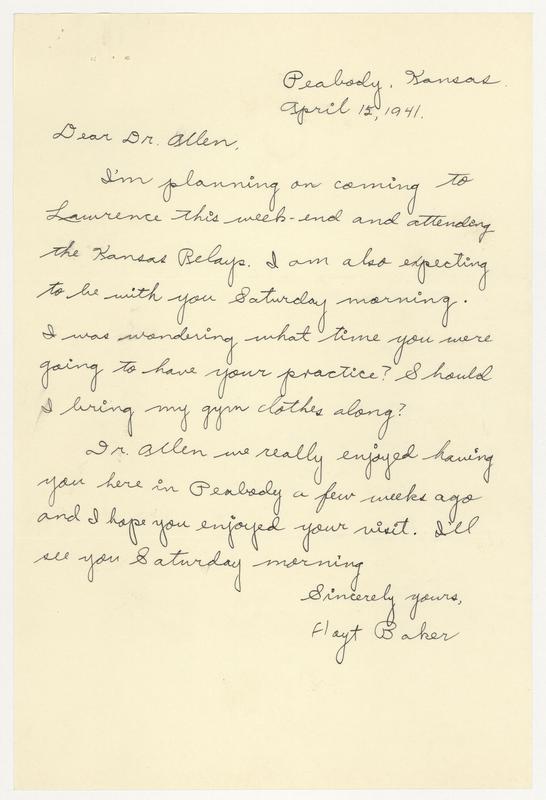 Peabody, Kansas.
April 15, 1941.
Dear Dr. Allen,
I'm planning on coming to
Lawrence this week-end and attending
the Kansas Relays. I am also expecting
to be with you Saturday morning.
I was wondering what time you were
going to have your practice? Should
I bring my gym clothes along?
Dr. Allen we really enjoyed having
you here in Peabody a few weeks ago
and I hope you enjoyed your visit. I'll
see you Saturday morning
Sincerely yours,
Hoyt Baker